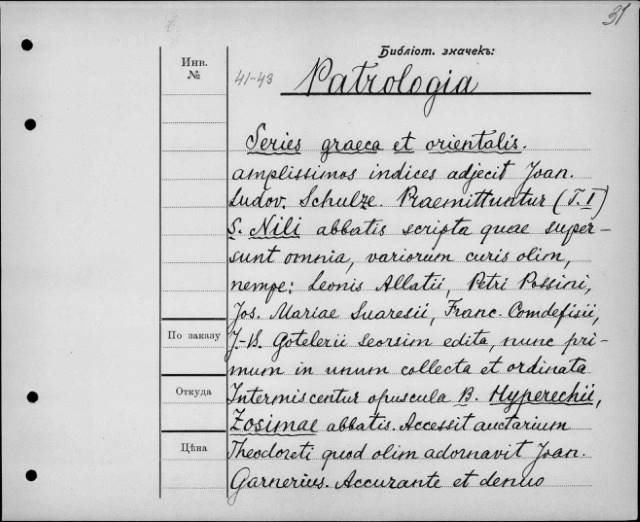 31
Библіот. значекъ:
Инв.
№
41-43
Patrologia
Series graeca et orientalis.
amplissimos indices adjecit Joan.
Ludov. Schulze. Praemittuntur (T. I)
S. Nili abbatis scripta quae super-
sunt omnia, variorum curis olim,
nempe: Leonis Allatii, Petri Possini,
Jos. Mariae Suaresii, Franc. Comdefisii,
По заказу
J.-B. Gotelerii seorsim edita, nunc pri-
mum in unum collecta et ordinata
Откуда
Intermiscentur opuscula B. Hyperechii,
Zosimae abbatis. Accessit auctarium
Цѣна
Theodoreti quod olim adornavit Joan.
Garnerius. Accurante et denuo